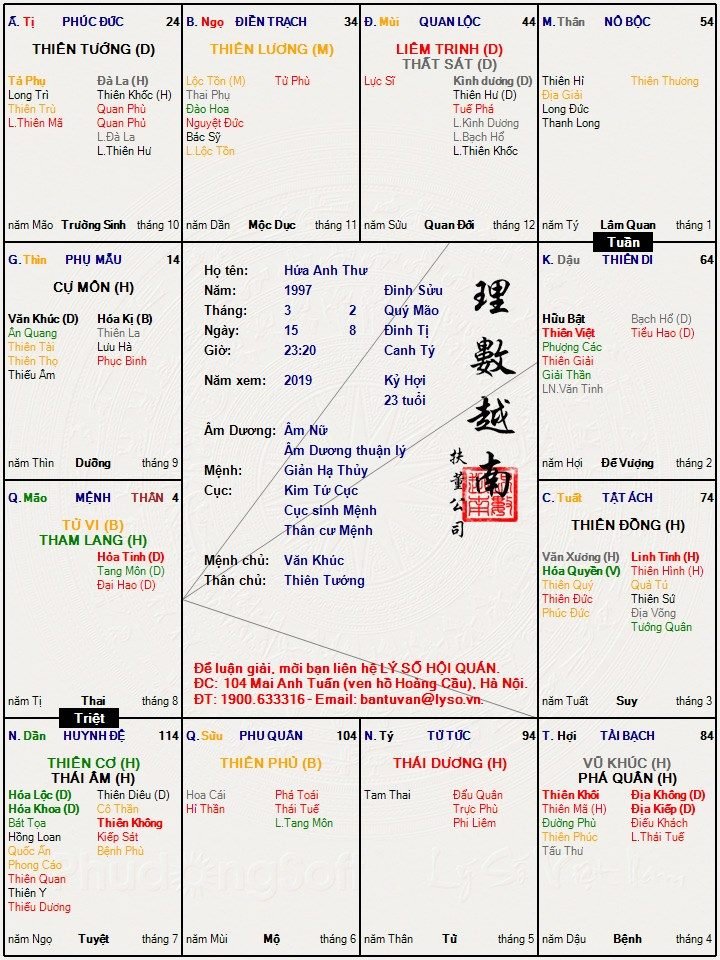 Ă. Tị PHÚC ĐỨC 24
THIÊN TƯỚNG (D)
Tả Phụ Đà La (H)
Long Trì Thiên Khốc (H)
Thiên Trù Quan Phù
L.Thiên Mã Quan Phủ
L.Đà La
L.Thiên Hư
năm Mão Trường Sinh tháng 10
B. Ngọ ĐIỀN TRẠCH 34
THIÊN LƯƠNG (M)
Lộc Tồn (M) Tử Phù
Thai Phụ
Đào Hoa
Nguyệt Đức
Bác Sỹ
L.Lộc Tồn
năm Dần Mộc Dục tháng 11
Đ. Mùi QUAN LỘC 44
LIÊM TRINH (D)
THẤT SÁT (D)
Lực Sĩ Kình dương (D)
Thiên Hư (D)
Tuế Phá
L.Kình Dương
L.Bạch Hổ
L.Thiên Khốc
năm Sửu Quan Đới tháng 12
M. Thân NÔ BỘC 54
Thiên Hỉ Thiên Thương
Địa Giải
Long Đức
Thanh Long
năm Tý Lâm Quan tháng 1
Tuần
G. Thìn PHỤ MẪU 14
CỰ MÔN (H)
Văn Khúc (D) Hóa Kị (B)
Ân Quang Thiên La
Thiên Tài Lưu Hà
Thiên Thọ Phục Binh
Thiếu Âm
năm Thìn Dưỡng tháng 9
Họ tên: Hứa Anh Thư
Năm: 1997 Đinh Sửu
Tháng: 3 2 Quý Mão
Ngày: 15 8 Đinh Tị
Giờ: 23:20 Canh Tý
Năm xem: 2019 Kỷ Hợi
23 tuổi
Âm Dương: Âm Nữ
Âm Dương thuận lý
Mệnh: Giản Hạ Thủy
Cục: Kim Tứ Cục
Cục sinh Mệnh
Thân cư Mệnh
Mệnh chủ: Văn Khúc
Thân chủ: Thiên Tướng
理數越南
扶董公司
Để luận giải, mời bạn liên hệ LÝ SỐ HỘI QUÁN.
ĐC: 104 Mai Anh Tuấn (ven hồ Hoàng Cầu), Hà Nội.
ĐT: 1900.633316 - Email: bantuvan@lyso.vn.
K. Dậu THIÊN DI 64
Hữu Bật Bạch Hổ (D)
Thiên Việt Tiểu Hao (D)
Phượng Các
Thiên Giải
Giải Thần
LN.Văn Tinh
năm Hợi Đế Vượng tháng 2
Q. Mão MỆNH THÂN 4
TỬ VI (B)
THAM LANG (H)
Hỏa Tinh (D)
Tang Môn (D)
Đại Hao (D)
năm Tị Thai tháng 8
Triệt
C. Tuất TẬT ÁCH 74
THIÊN ĐỒNG (H)
Văn Xương (H) Linh Tinh (H)
Hóa Quyền (V) Thiên Hình (H)
Thiên Quý Quả Tú
Thiên Đức Thiên Sứ
Phúc Đức Địa Võng
Tướng Quân
năm Tuất Suy tháng 3
N. Dần HUYNH ĐỆ 114
THIÊN CƠ (H)
THÁI ÂM (H)
Hóa Lộc (D) Thiên Diêu (D)
Hóa Khoa (D) Cô Thần
Bát Tọa Thiên Không
Hồng Loan Kiếp Sát
Quốc Ấn Bệnh Phù
Phong Cáo
Thiên Quan
Thiên Y
Thiếu Dương
năm Ngọ Tuyệt tháng 7
Q. Sửu PHU QUÂN 104
THIÊN PHỦ (B)
Hoa Cái Phá Toái
Hỉ Thần Thái Tuế
L.Tang Môn
năm Mùi Mộ tháng 6
N. Tý TỬ TỨC 94
THÁI DƯƠNG (H)
Tam Thai Đẩu Quân
Trực Phù
Phi Liêm
năm Thân Tử tháng 5
T. Hợi TÀI BẠCH 84
VŨ KHÚC (H)
PHÁ QUÂN (H)
Thiên Khôi Địa Không (D)
Thiên Mã (H) Địa Kiếp (D)
Đường Phù Điếu Khách
Thiên Phúc L.Thái Tuế
Tấu Thư
năm Dậu Bệnh tháng 4